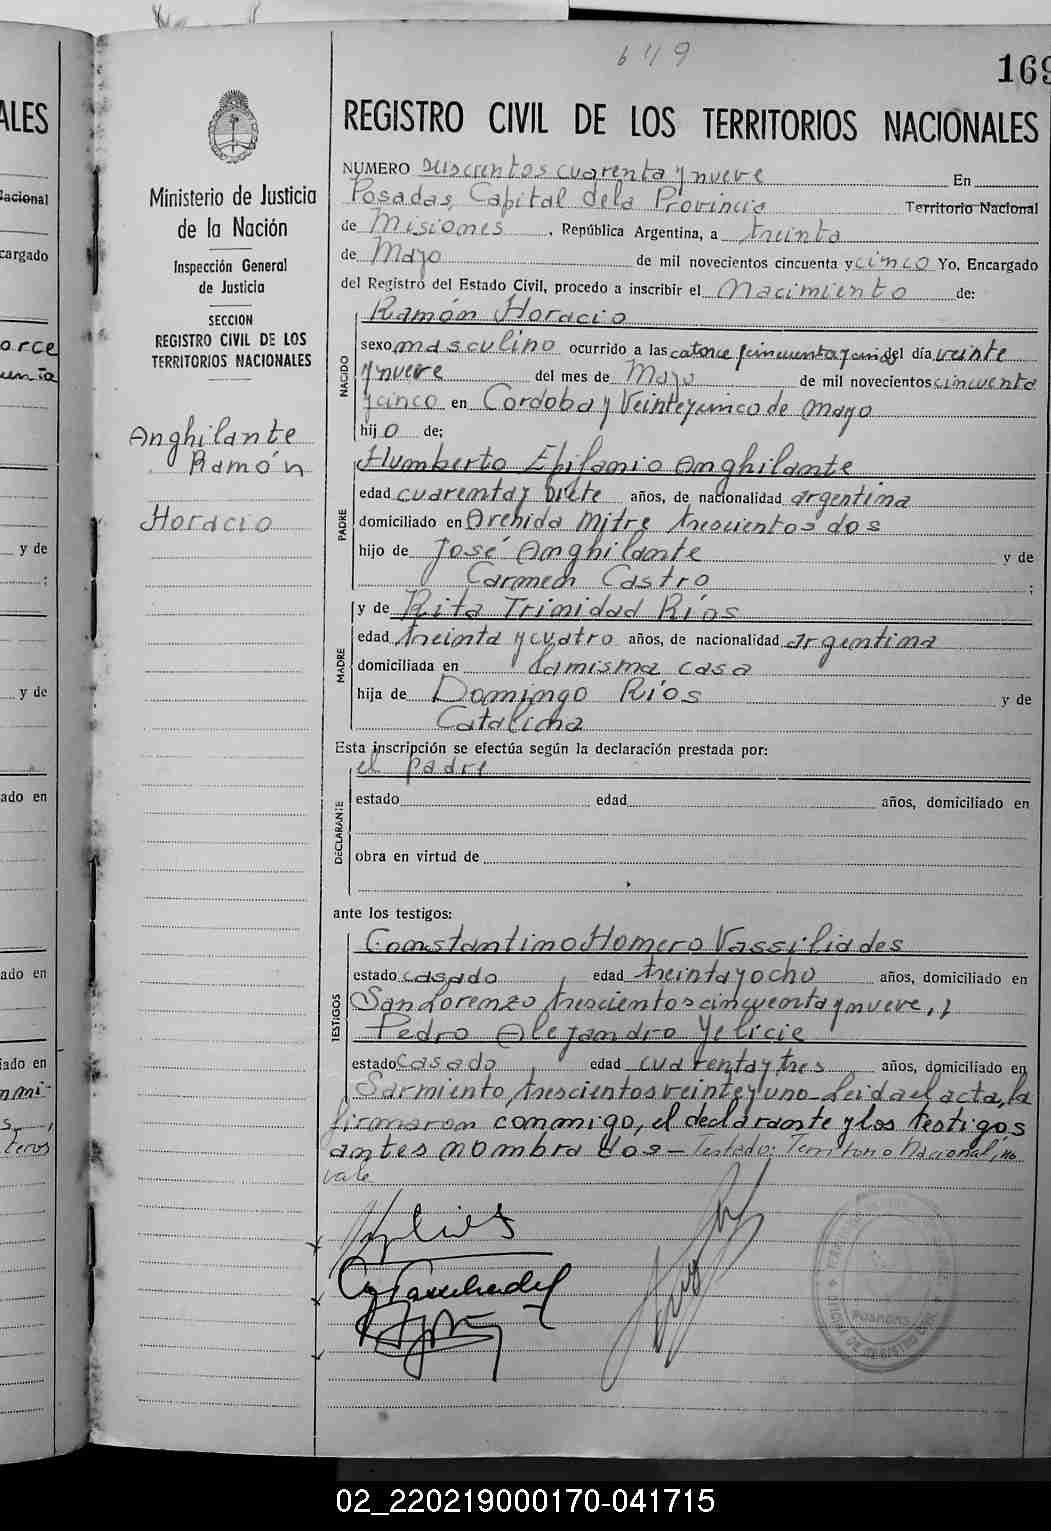 649
169
ALES
REGISTRO CIVIL DE LOS TERRITORIOS NACIONALES
Nacional
cargado
orce
y de
;
y de
ado en
ado en
iado en
nmi-
teros
Ministerio de Justicia
de la Nación
Inspección General
de Justicia
SECCION
REGISTRO CIVIL DE LOS
TERRITORIOS NACIONALES
Anghilante
Ramón
Horacio
NUMERO seiscientos cuarenta y nueve En
Posadas, Capital de la Provincia Territorio Nacional
de Misiones, República Argentina, a treinta
de Mayo de mil novecientos cincuenta y cinco Yo, Encargado
del Registro del Estado Civil, procedo a inscribir el Nacimiento de:
Ramón Horacio
NACIDO
sexo masculino ocurrido a las catorce y cincuenta y cinco del día veinte
y nueve del mes de Mayo de mil novecientos cincuenta
y cinco en Cordoba y Veinteycinco de Mayo
hijo de;
PADRE
Humberto Epifanio Anghilante
edad cuarenta y siete años, de nacionalidad argentina
domiciliado en Avenida Mitre trescientos dos
hijo de José Anghilante y de
Carmen Castro ;
MADRE
y de Rita Trinidad Ríos
edad treinta y cuatro años, de nacionalidad argentina
domiciliada en la misma casa
hija de Domingo Ríos y de
Catalina
Esta inscripción se efectúa según la declaración prestada por:
el padre
DECLARANTE
estado edad años, domiciliado en
obra en virtud de
ante los testigos:
TESTIGOS
Constantino Homero Vassiliades
estado casado edad treinta y ocho años, domiciliado en
San Lorenzo trescientos cincuenta y nueve, y
Pedro Alejandro Yelicie
estado casado edad cuarenta y tres años, domiciliado en
Sarmiento, trescientos veinte y uno - Leida el acta, la
firmaron conmigo, el declarante y los testigos
antes nombrados - Testado: Territorio Nacional, no
vale
02_220219000170-041715